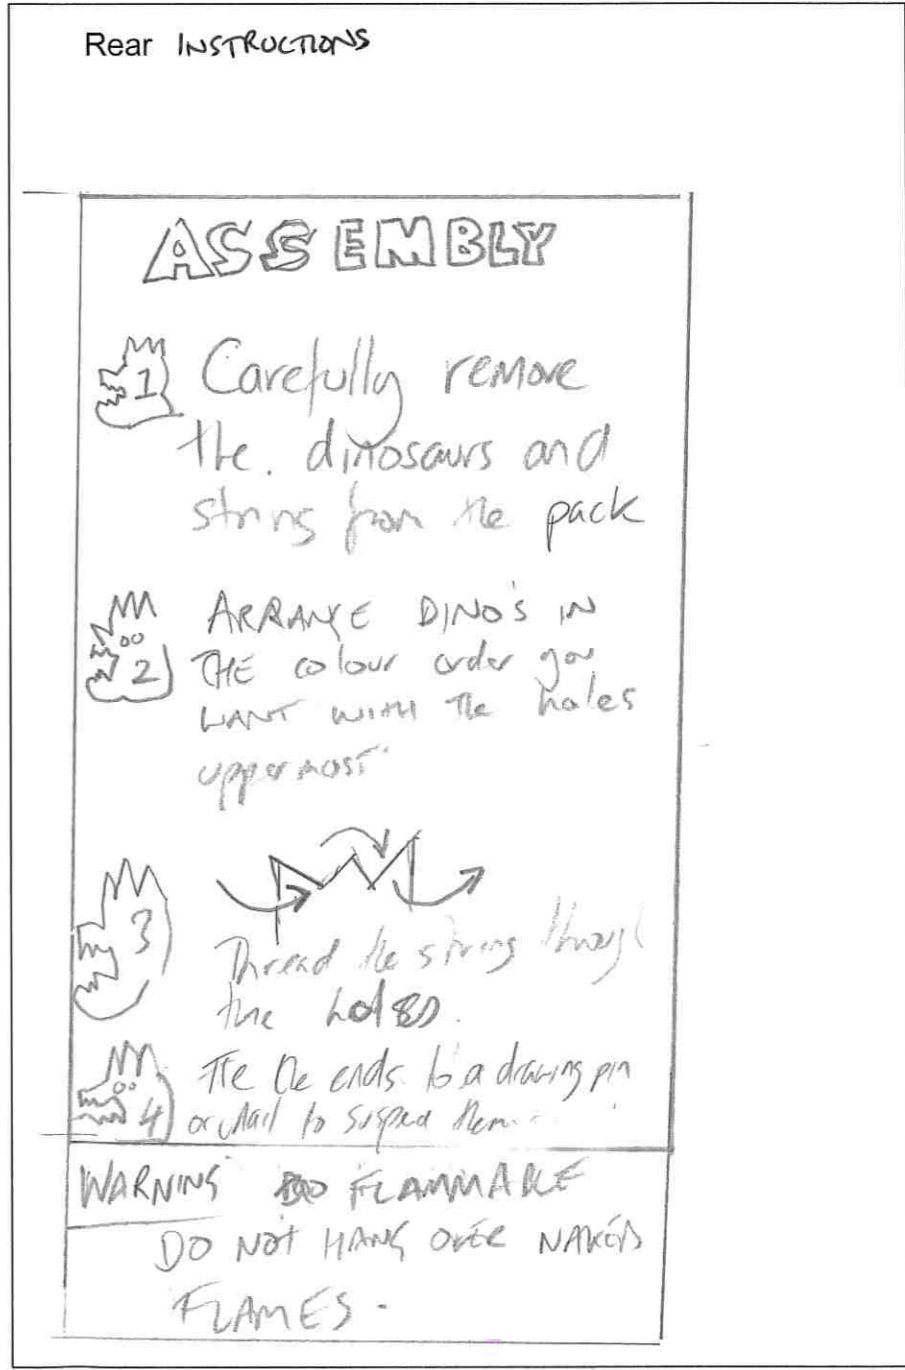 Rear INSTRUCTIONS
ASSEMBLY
1 Carefully remove
the. dinosaurs and
string from the pack
2 ARRANGE DINO'S IN
THE colour order you
WANT WITH The holes
uppermost
3
Thread the string through
the holes.
4 Tie the ends to a drawing pin
or nail to suspend them.
WARNING FLAMMABLE
DO NOT HANG OVER NAKED
FLAMES.